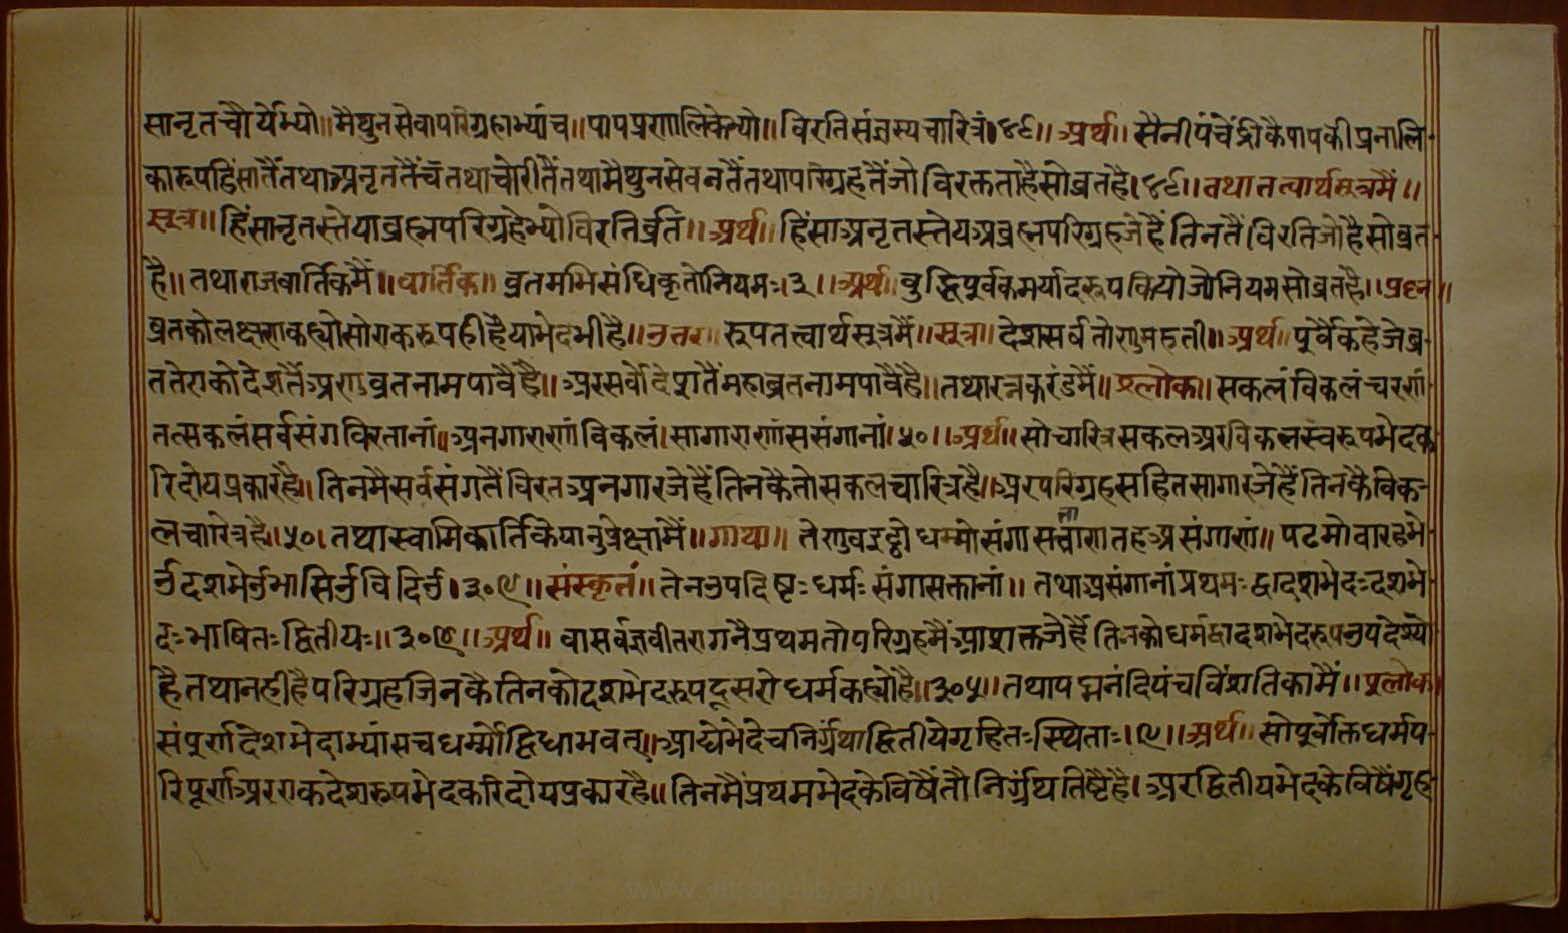 सानृतचौर्येभ्यो॥मैथुनसेवापरिग्रहाभ्यांच॥पापप्रणालिकेभ्यो॥विरतिसंज्ञस्यचारित्रं।४९॥अर्थ॥सैनीपंचेंद्रीकैपापकीप्रनालि-
कारूपहिंसातैंतथाअनृततैंचतथाचोरीतैंतथामैथुनसेवनतैंतथापरिग्रहतैंजोविरक्तताहैसोव्रतहै।४९॥तथातत्वार्थसूत्रमैं॥
सूत्र॥हिंसानृतस्तेयाब्रह्मपरिग्रहेभ्योविरतिर्व्रतं॥अर्थ॥हिंसाअनृतस्तेयअब्रह्मपरिग्रहजेहैंतिनतैंविरतिजोहैसोव्रत
है॥तथाराजवार्तिकमैं॥वार्तिक॥व्रतमभिसंधिकृतोनियमः।३॥अर्थ॥बुद्धिपूर्वकमर्यादरूपकियोजोनियमसोव्रतहै॥प्रश्न॥
व्रतकोलक्षणकह्योसोएकरूपहीहैयाभेदभीहै॥उत्तर॥रूपतत्वार्थसूत्रमैं॥सूत्र॥देशसर्वतोणुमहती॥अर्थ॥पूर्वैकहेजेव्र-
ततेएकोदेशतैंअणुव्रतनामपावैहै॥अरसर्वोदेशतैंमहाव्रतनामपावैहै॥तथारत्नकरंडमैं॥श्लोक॥सकलंविकलंचरणं
तत्सकलंसर्वसंगविरतानां॥अनगाराणांविकलं।सागाराणांससंगानां।५०॥अर्थ॥सोचारित्रसकलअरविकलस्वरूपभेदक
रिदोयप्रकारहै॥तिनमैसर्वसंगतैंविरतअनगारजेहैंतिनकैतोसकलचारित्रहै॥अरपरिग्रहसहितसागारजेहैंतिनकैविक-
लचारित्रहै।५०।तथास्वामिकार्तिकेयानुप्रेक्षामैं॥गाथा॥तेणुवइट्ठोधम्मोसंगासत्ताणतहअसंगाणं॥पढमोबारहभे-
र्उदशभेर्उभासिर्उविदिर्उ।३०४॥संस्कृतं॥तेनउपदिष्टःधर्मःसंगासक्तानां॥तथाअसंगानांप्रथमःद्वादशभेदःदशभे-
दःभाषितःद्वितीयः॥३०४॥अर्थ॥वासर्वज्ञवीतरागनैप्रथमतोपरिग्रहमैंआशक्तजेहैंतिनकोधर्मद्वादशभेदरूपउपदेश्यो
हैतथानहीहैपरिग्रहजिनकैतिनकोदशभेदरूपदूसरोधर्मकह्योहै॥३०५॥तथापद्मनंदिपंचविंशतिकामैं॥श्लोक॥
संपूर्णदेशभेदाभ्यांसचधर्म्मोद्विधाभवत्॥आद्येभेदेचनिर्ग्रंथाद्वितीयेगृहितःस्थिताः।४॥अर्थ॥सोपूर्वोक्तधर्मप-
रिपूर्णअरएकदेशरूपभेदकरिदोयप्रकारहै॥तिनमैंप्रथमभेदकेविषैंतौनिर्ग्रंथतिष्टैहै।अरद्वितीयभेदकेविषैंगृह